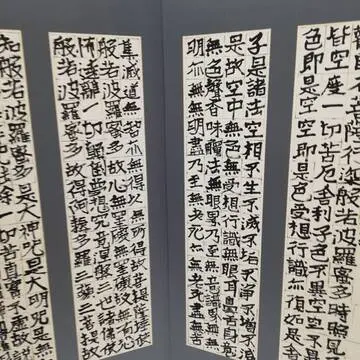 行深般若波羅蜜多時照見
皆空度一切苦厄舍利子色不異空空不
色即是空空即是色受想行識亦復如是舍
子是諸法空相不生不滅不垢不淨不增不減
是故空中無色無受想行識無眼耳鼻舌身意
無色聲香味觸法無眼界乃至無意識界無無
明亦無無明盡乃至無老死亦無老死盡無苦
集滅道無智亦無得以無所得故菩提薩埵依
般若波羅蜜多故心無罣礙無罣礙故無有恐
怖遠離一切顛倒夢想究竟涅槃三世諸佛依
般若波羅蜜多故得阿耨多羅三藐三菩提故
知般若波羅蜜多是大神呪是大明呪是無
除一切苦真實不虛故說